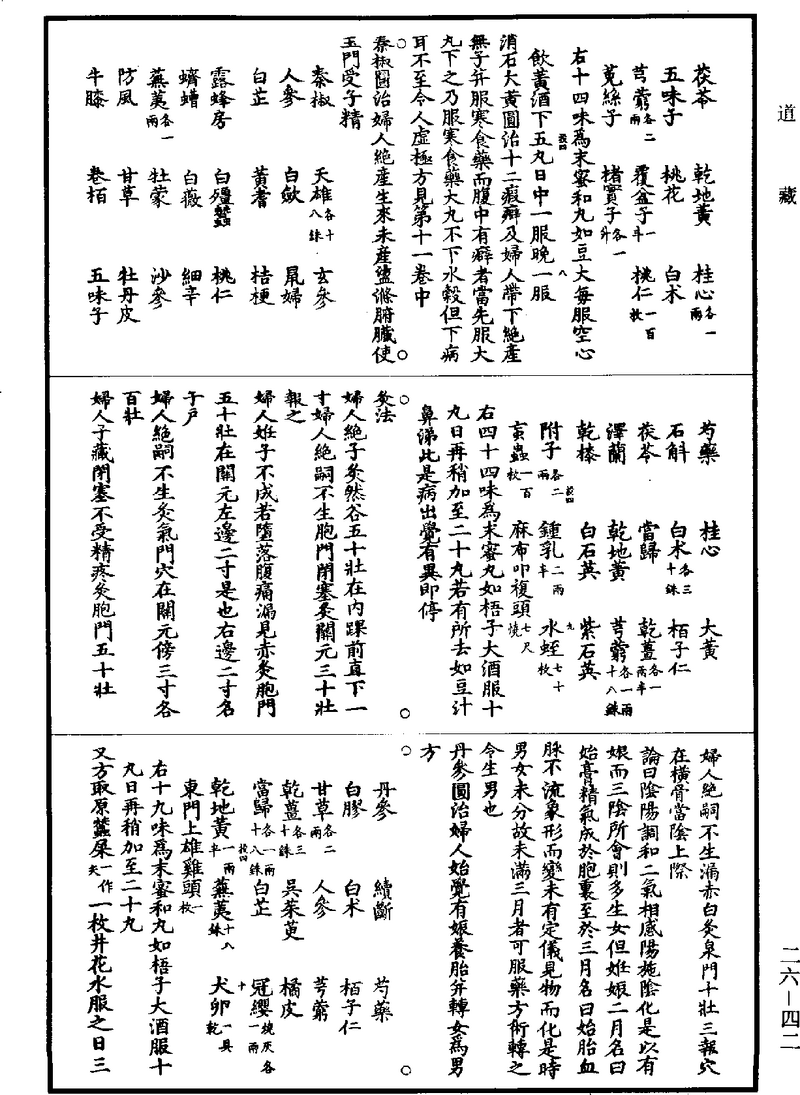 道藏
茯苓 乾地黃 桂心各一兩
五味子 桃花 白朮
芎藭各二兩 覆盆子一斗 桃仁一百枚
菟絲子 楮實子各一升
右十四味爲末蜜和丸如豆大每服空心
飲黃酒下五丸日中一服晚一服
消石大黃圓治十二瘕癖及婦人帶下絕產
無子并服寒食藥而腹中有癖者當先服大
丸下之乃服寒食藥大丸不下水穀但下病
耳不至令人虛極方見第十一卷中
秦椒圓治婦人絕產生來未產盪滌腑臟使
玉門受子精
秦椒 天雄各十八銖 玄參
人參 白歛 鼠婦
白芷 黃耆 桔梗
露蜂房 白殭蠶 桃仁
蠐螬 白薇 細辛
蕪荑各一兩 牡蒙 沙參
防風 甘草 牡丹皮
牛膝 卷栢 五味子
芍藥 桂心 大黃
石斛 白朮各三十銖 栢子仁
茯苓 當歸 乾薑各一兩半
澤蘭 乾地黃 芎藭各一兩十八銖
乾㯃 白石英 紫石英
附子各二兩 鍾乳二兩半 水蛭七十枚
䖟蟲一百枚 麻布叩複頭七尺燒
右四十四味爲末蜜丸如梧子大酒服十
九日再稍加至二十九若有所去如豆汁
鼻涕此是病出覺有異即停
灸法
婦人絕子灸然谷五十壯在內踝前直下一
寸婦人絕嗣不生胞門閉塞灸關元三十壯
報之
婦人姙子不成若墮落腹痛漏見赤灸胞門
五十壯在關元左邊二寸是也右邊二寸名
子戶
婦人絕嗣不生灸氣門穴在關元傍三寸各
百壯
婦人子藏閉塞不受精疼灸胞門五十壯
婦人絕嗣不生漏赤白灸泉門十壯三報穴
在橫骨當陰上際
論曰陰陽調和二氣相感陽施陰化是以有
娠而三陰所會則多生女但姙娠二月名曰
始膏精氣成於胞裏至於三月名曰始胎血
脉不流象形而變未有定儀見物而化是時
男女未分故未滿三月者可服藥方術轉之
令生男也
丹參圓治婦人始覺有娠養胎并轉女爲男
方
丹參 續斷 芍藥
白膠 白朮 栢子仁
甘草各二兩 人參 芎藭
乾薑各三十銖 吳茱萸 橘皮
當歸各一兩十八銖 白芷 冠纓燒灰各一兩
乾地黃一兩半 蕪荑十八銖 犬卵一具乾
東門上雄雞頭一枚
右十九味爲末蜜和丸如梧子大酒服十
九日再稍加至二十九
又方取原蠶屎一作矢一枚井花水服之日三
二六—四二